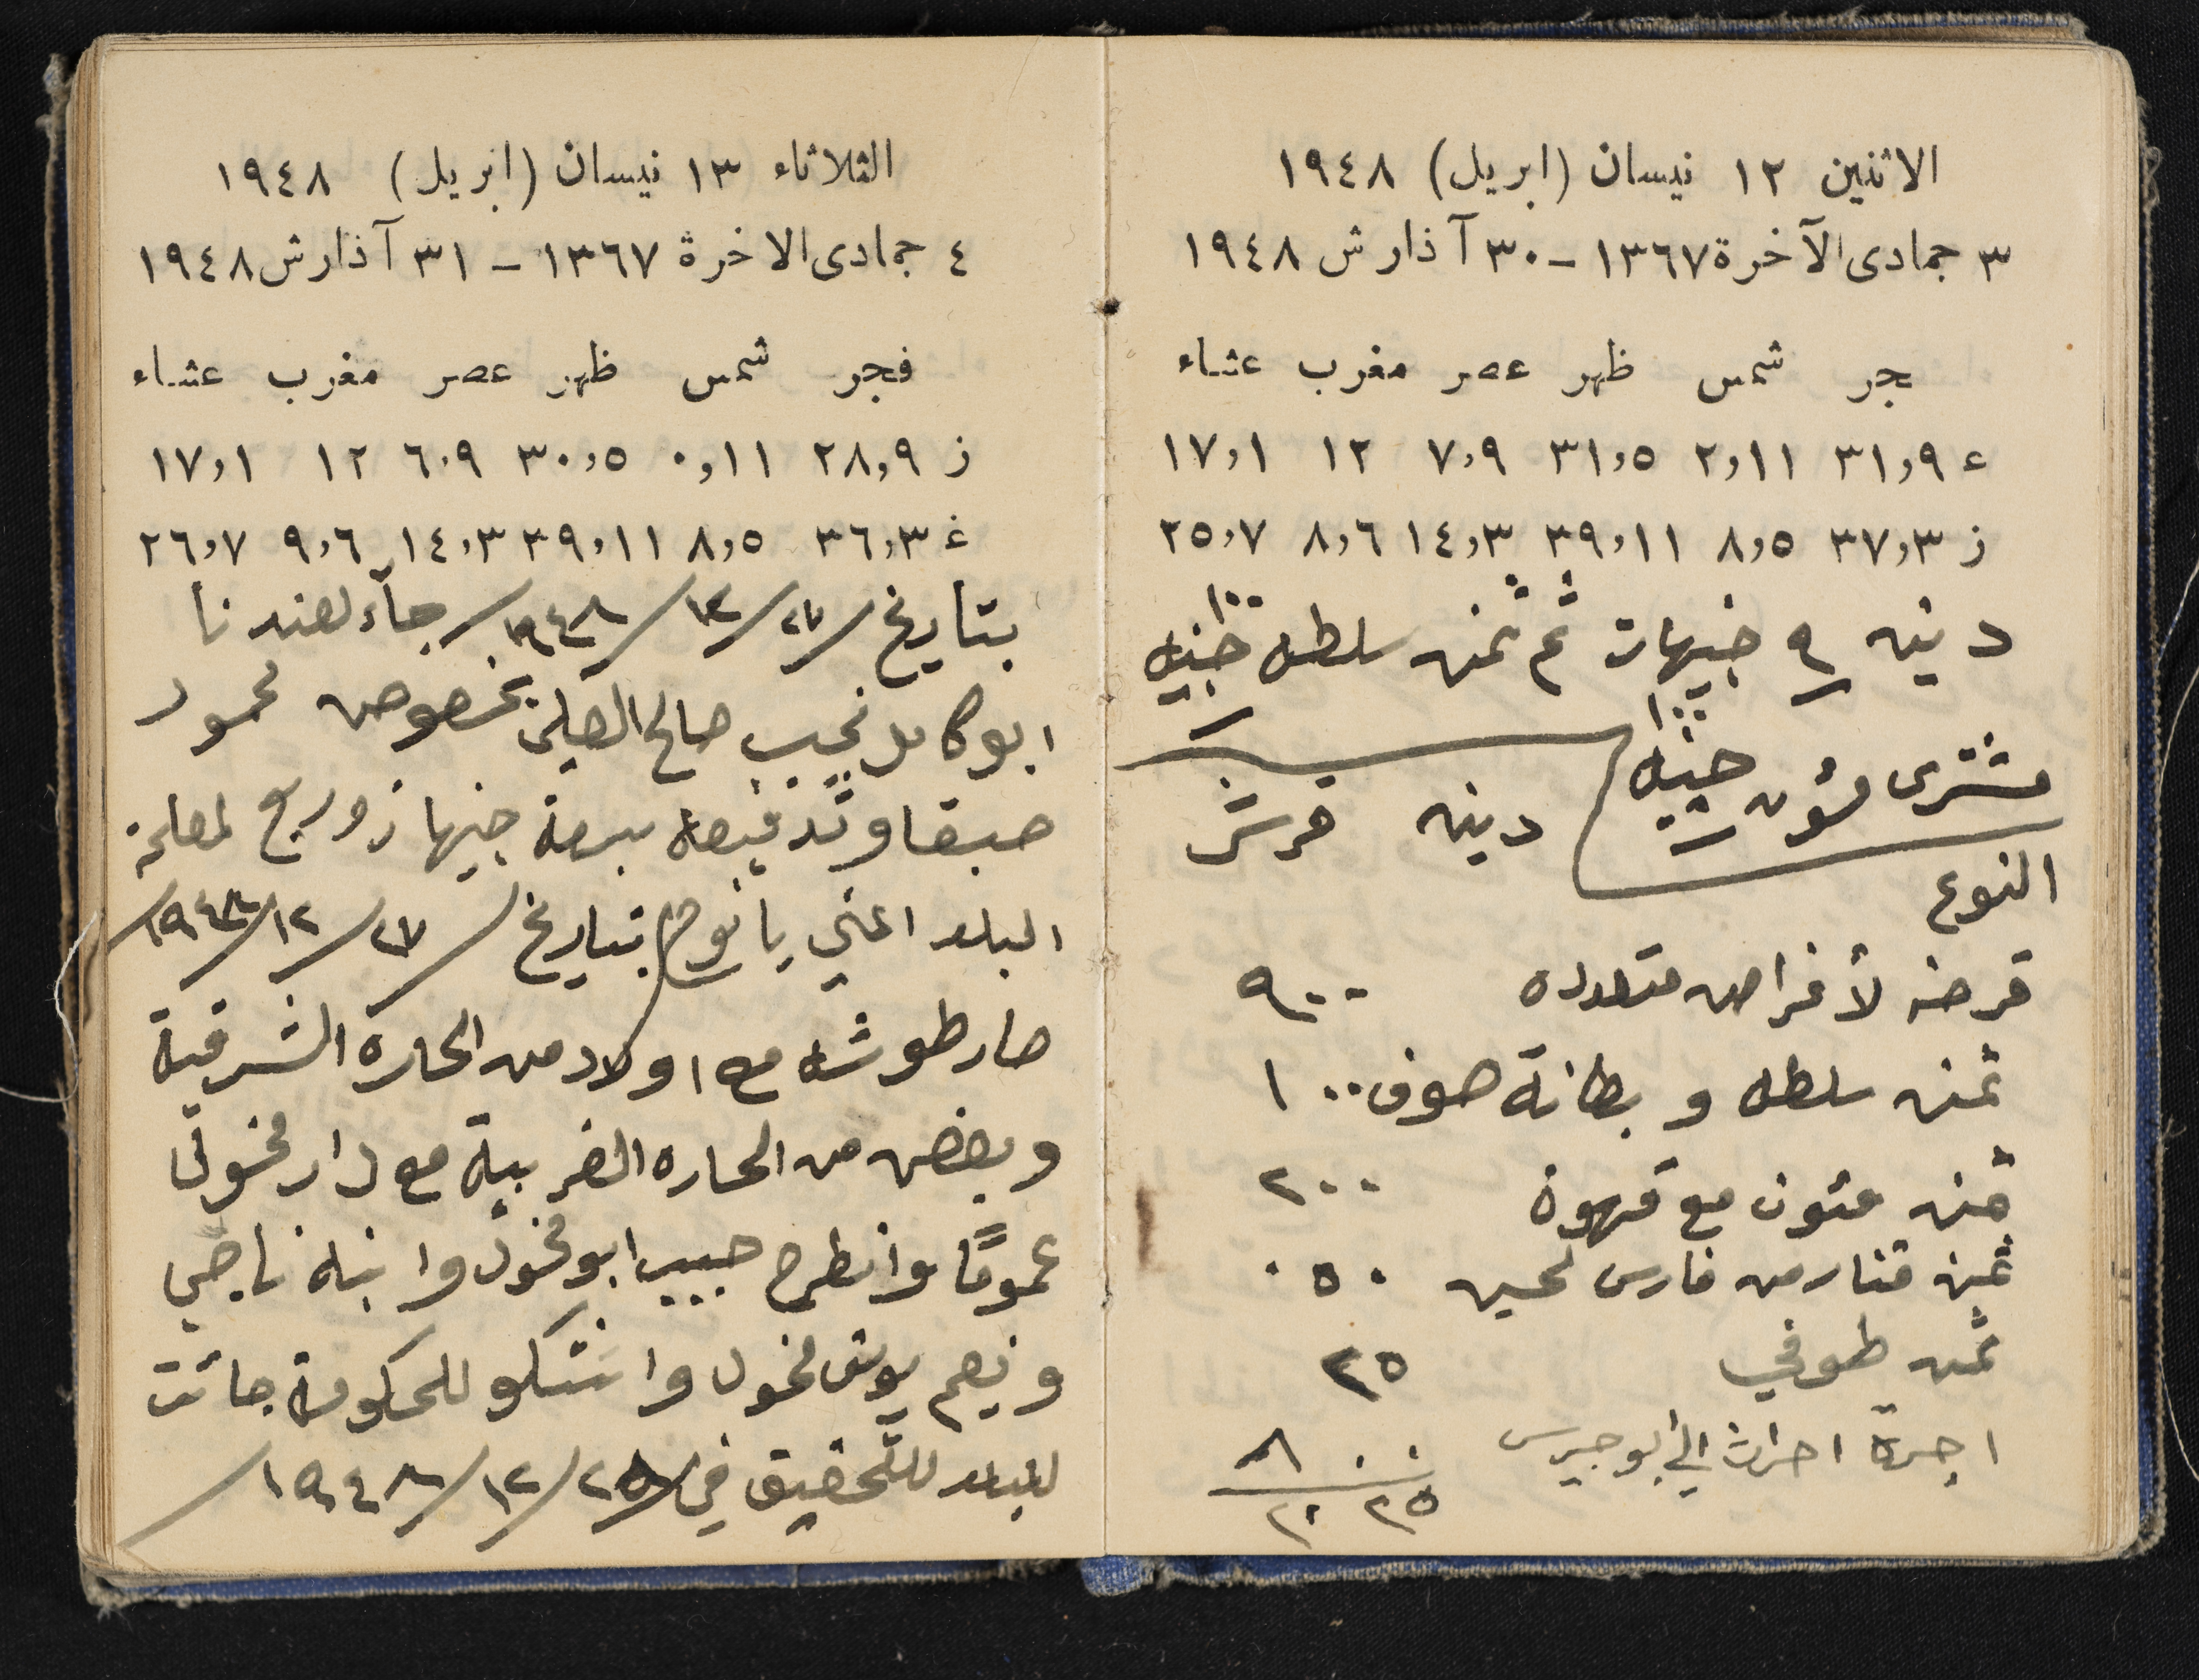 الاثنين ١٢ نيسان (ابريل) ١٩٤٨
٣ جمادى الآخرة ١٣٦٧ - ٣٠ آذار ش ١٩٤٨
جر شمس ظهر عصر مغرب عشاء
ع ٣١,٩ ٢,١١ ٣١,٥ ٧,٩ ١٢ ١٧,١
ز ٣٧,٣ ٨,٥ ٣٩,١١ ١٤,٣ ٨,٦ ٢٥,٧
دينه ٩ جنيهات ثم ثمن سلطه جنيه
مشترى مؤن جنيه دينه قرش
النوع
قرضه لأغراض متعدده ٩٠٠
ثمن سلطه و بطانة صوف ١٠٠
ثمن مئون مع قهوة ٢٠٠
ثمن من فارس ٠٥٠
ثمن ٢٥
اجرة احراث الى ابو جبرس ٨٠٠
٢٠٢٥
الثلاثاء ١٣ نيسان (ابريل) ١٩٤٨
٤ جمادى الاخرة ١٣٦٧ - ٣١ آذار ش ١٩٤٨
فجر شمس ظهر عصر مغرب عشاء
ز ٢٨,٩ ٠,١١ ٣٠,٥ ٦,٩ ١٢ ١٧,١
غ ٣٦,٣ ٨,٥ ٣٩,١١ ١٤,٣ ٩,٦ ٢٦,٧
بتاريخ /٢٧/١٢/١٩٤٨/ جآء لعندنا
ابو كامل نجيب صالح العلي بخصوص محمود
سبعة جنيهات وربع
البلد اعني يانوح بتاريخ /٢٧/١٢/١٩٤٨/
صار طوشه مع اولاد من الحاره الشرقية
وبعض من الحاره الغربية مع دار مخول
عمومًا وانطرح حبيب ابو مخول وابنه ناجي
ونعيم يوسف مخول واشتكو للحكومة جائت
للبلد للتحقيق في /٢٨/١٢/١٩٤٨/